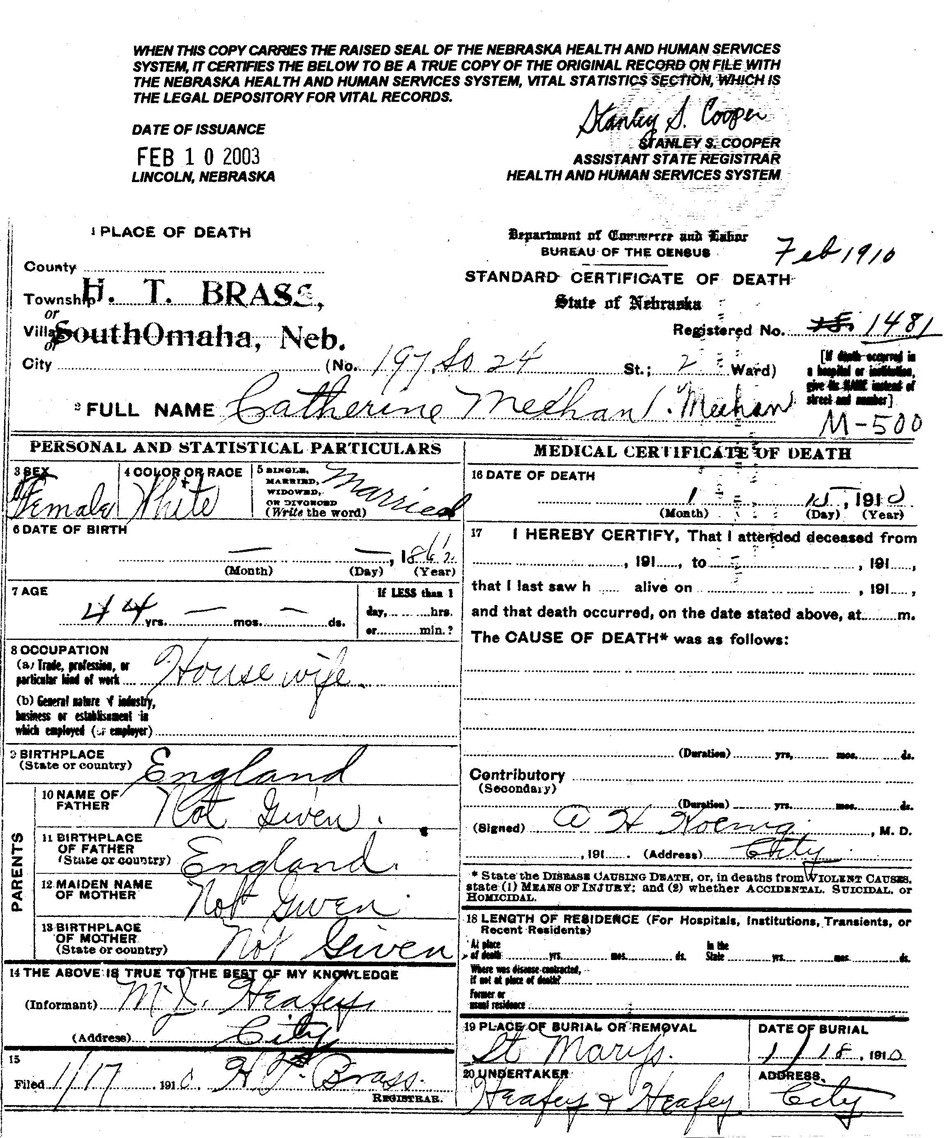 WHEN THIS COPY CARRIES THE RAISED SEAL OF THE NEBRASKA HEALTH AND HUMAN SERVICES
SYSTEM, IT CERTIFIES THE BELOW TO BE A TRUE COPY OF THE ORIGINAL RECORD ON FILE WITH
THE NEBRASKA HEALTH AND HUMAN SERVICES SYSTEM, VITAL STATISTICS SECTION, WHICH IS
THE LEGAL DEPOSITORY FOR VITAL RECORDS.
DATE OF ISSUANCE
FEB 10 2003
LINCOLN, NEBRASKA
Stanley S. Cooper
STANLEY S. COOPER
ASSISTANT STATE REGISTRAR
HEALTH AND HUMAN SERVICES SYSTEM
1 PLACE OF DEATH
County
Township H. T. BRASS,
or
Village South Omaha, Neb.
City
Department of Commerce and Labor
BUREAU OF THE CENSUS
Feb 1910
STANDARD CERTIFICATE OF DEATH
State of Nebraska
Registered No. 1481
(No. 197 So 24 St.; 2 Ward)
[If death occurred in
a hospital or institution,
give its NAME instead of
street and number]
2 FULL NAME Catherine Meehan. Meehan
M-500
PERSONAL AND STATISTICAL PARTICULARS
3 SEX
Female
4 COLOR OR RACE
White
5 SINGLE,
MARRIED,
WIDOWED,
OR DIVORCED
(Write the word)
Married
6 DATE OF BIRTH
— — , 186
(Month) (Day) (Year)
7 AGE
44 yrs. — mos. — ds.
If LESS than 1
day, hrs.
or min.?
8 OCCUPATION
(a) Trade, profession, or
particular kind of work Housewife.
(b) General nature of industry,
business or establishment in
which employed (or employer)
9 BIRTHPLACE
(State or country) England
PARENTS
10 NAME OF
FATHER Not Given.
11 BIRTHPLACE
OF FATHER
(State or country) England.
12 MAIDEN NAME
OF MOTHER Not Given
13 BIRTHPLACE
OF MOTHER
(State or country) Not Given
14 THE ABOVE IS TRUE TO THE BEST OF MY KNOWLEDGE
(Informant) Heafey,
(Address) City
15
Filed 1/17 1910 H. T. Brass.
REGISTRAR.
MEDICAL CERTIFICATE OF DEATH
16 DATE OF DEATH
1 15 1910
(Month) (Day) (Year)
17 I HEREBY CERTIFY, That I attended deceased from
, 191 , to , 191 ,
that I last saw h alive on , 191 ,
and that death occurred, on the date stated above, at m.
The CAUSE OF DEATH* was as follows:
(Duration) yrs. mos. ds.
Contributory
(Secondary)
(Duration) yrs. mos. ds.
(Signed) A H Koenig, M. D.
, 191 (Address) City
* State the DISEASE CAUSING DEATH, or, in deaths from VIOLENT CAUSES,
state (1) MEANS OF INJURY; and (2) whether ACCIDENTAL, SUICIDAL, OR
HOMICIDAL.
18 LENGTH OF RESIDENCE (For Hospitals, Institutions, Transients, or
Recent Residents)
At place
of death yrs. mos. ds.
In the
State yrs. mos. ds.
Where was disease contracted,
if not at place of death?
Former or
usual residence
19 PLACE OF BURIAL OR REMOVAL
St Marys.
DATE OF BURIAL
1/18, 1910
20 UNDERTAKER
Heafey & Heafey
ADDRESS
City